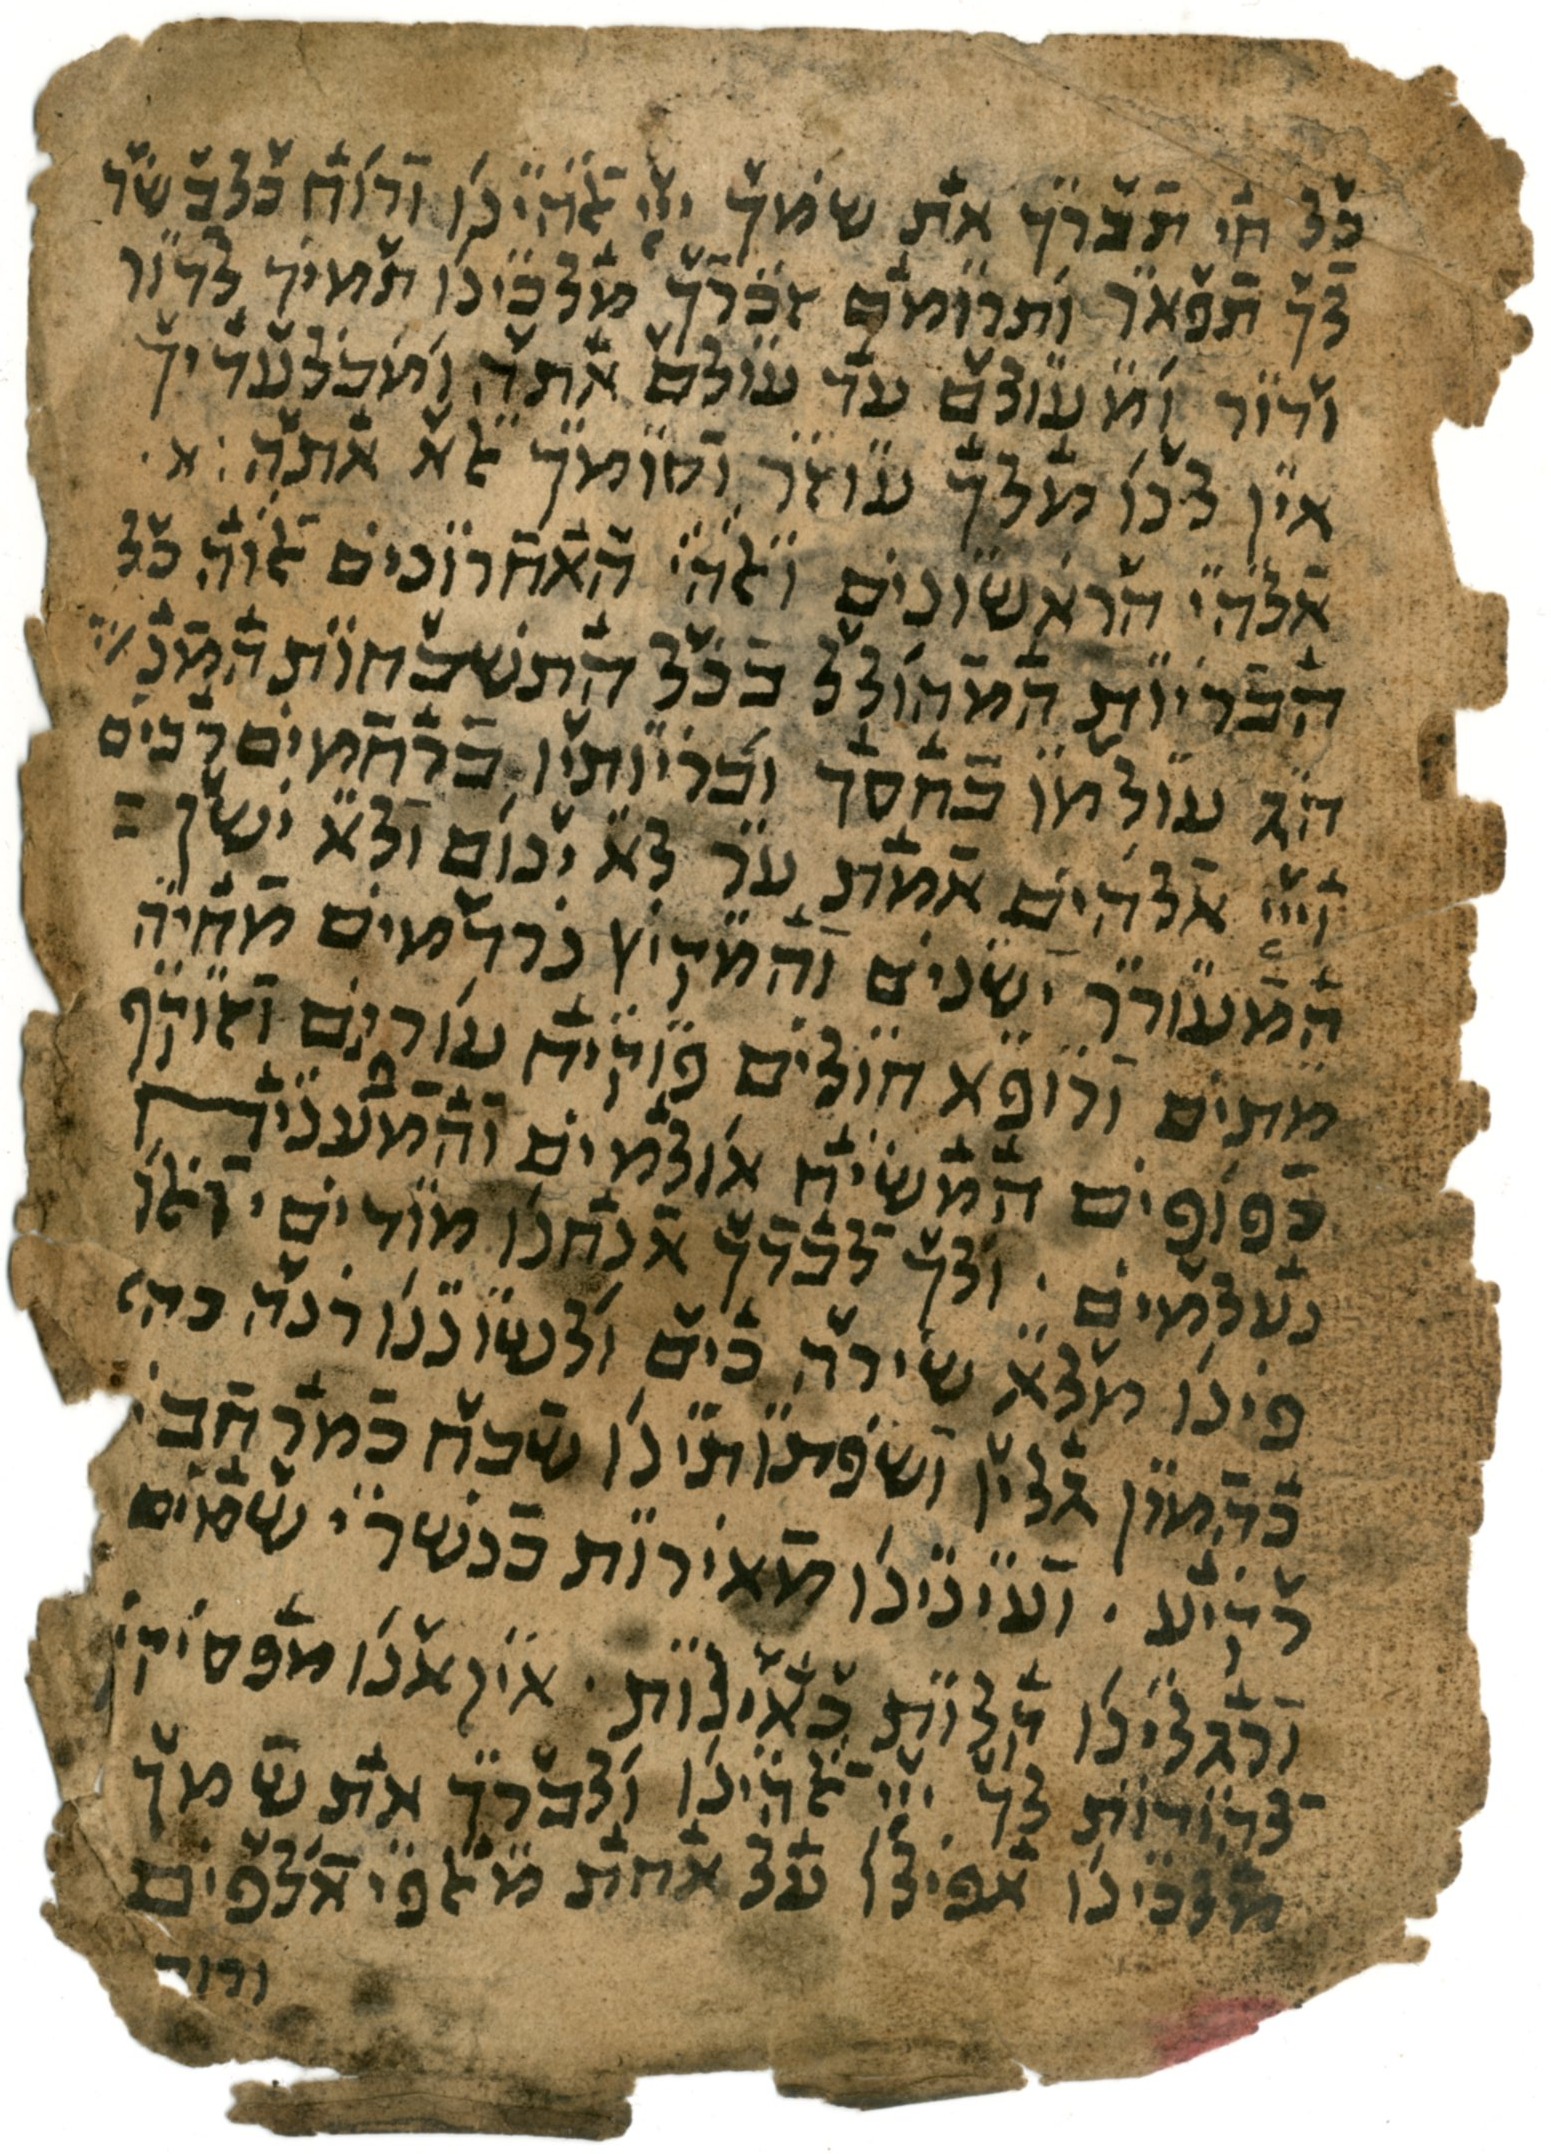 כל חי תברך את שמך ייי אלהינו ורוח כל בשר
לך תפאר ותרומם זכרך מלכינו תמיד לדור
ודור ומעולם עד עולם אתה ומבלעדיך
אין לנו מלך עוזר וסומך אלא אתה : א ·
אלהי הראשונים ואלהי האחרונים אלוה כל
הבריות המהולל בכל התשבחות המנ
הג עולמו בחסד ובריותיו ברחמים רבים
וייי אלהים אמת ער לא ינום ולא ישן
המעורר ישנים והמקיץ נרדמים מחיה
מתים ורופא חולים פוקיח עורים וזוקף
כפופים המשיח אולמים והמענפח
נעלמים · ולך לבדך אנחנו מודים ואלו
פינו מלא שירה כים ולשוננו רנה כה
כהמון גליו ושפתותינו שבח כמרחבי
רקיע · ועינינו מאירות כנשרי שמים
ורגלינו קלות כאילות · אין אנו מפסיקין
להודות לך ייי אלהינו ולברך את שמך
מלכינו אפילו על אחת מאלפי אלפים
ורוב